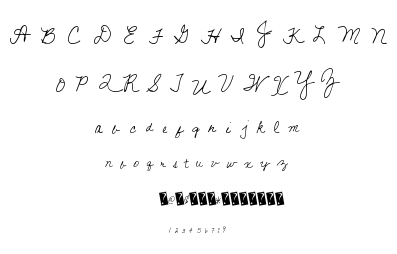 A B C D E F G H I J K L M N
O P Q R S T U V W X Y Z
a b c d e f g h i j k l m
n o p q r s t u v w x y z
1 2 3 4 5 6 7 8 9